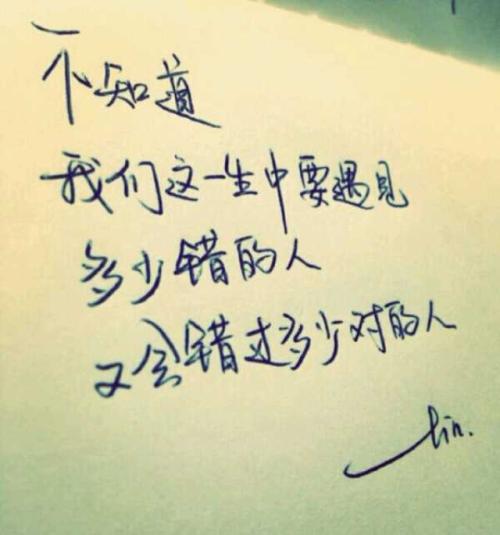 不知道
我们这一生中要遇见
多少错的人
又会错过多少对的人
—lin.